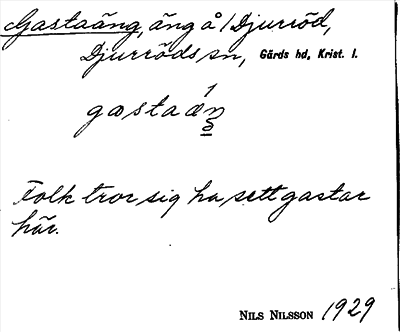 Gastaäng, äng å / Djurröd,
Djurröds sn, Gärds hd, Krist. l.
Folk tror sig ha sett gastar
här.
NILS NILSSON 1929